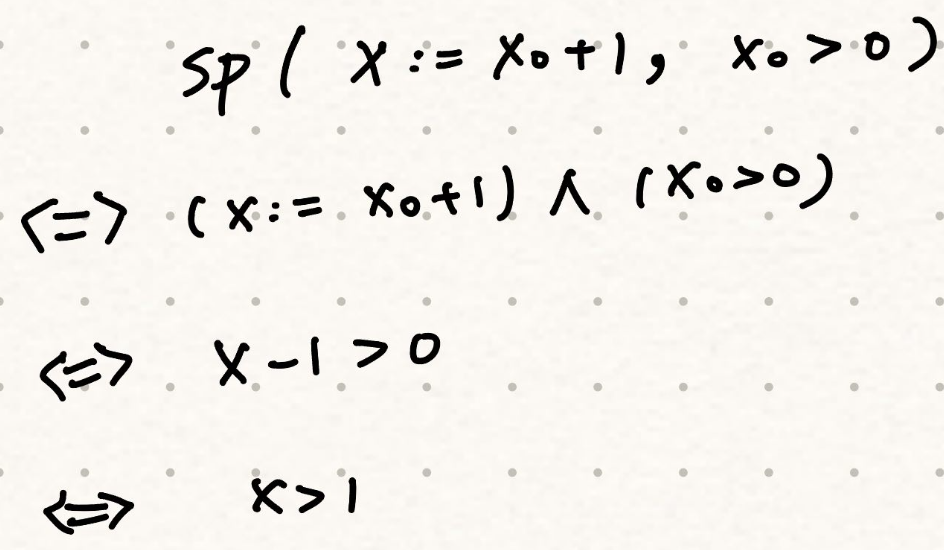 sp ( x := x₀ + 1, x₀ > 0 )
<=> ( x := x₀ + 1 ) ∧ ( x₀ > 0 )
<=> x - 1 > 0
<=> x > 1